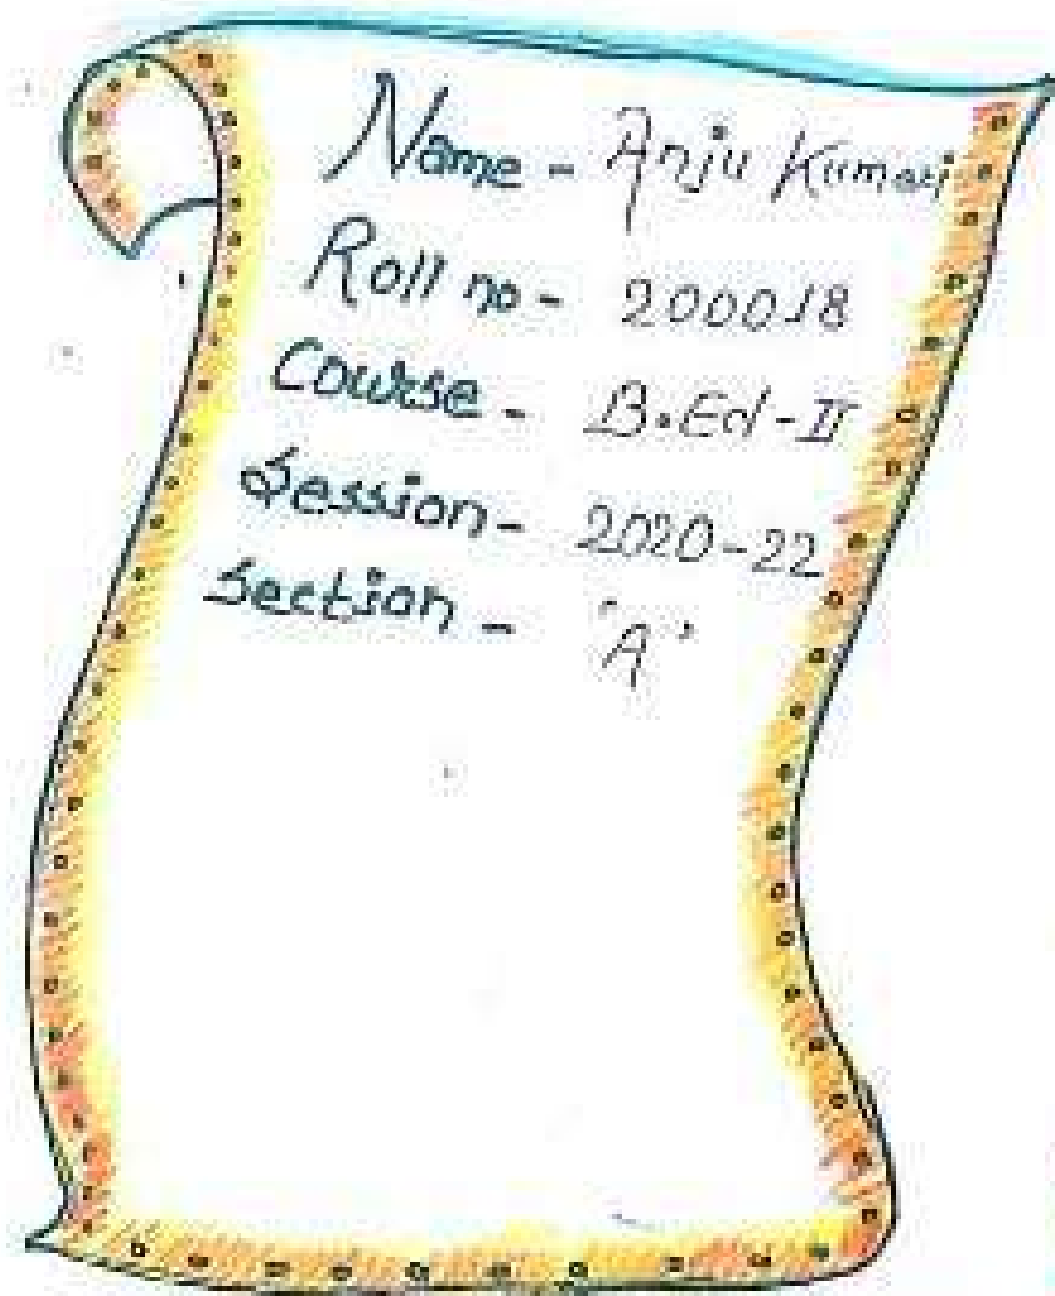 Name - Anju Kumari
Roll no - 200018
Course - B.Ed-II
Session - 2020-22
Section - "A"